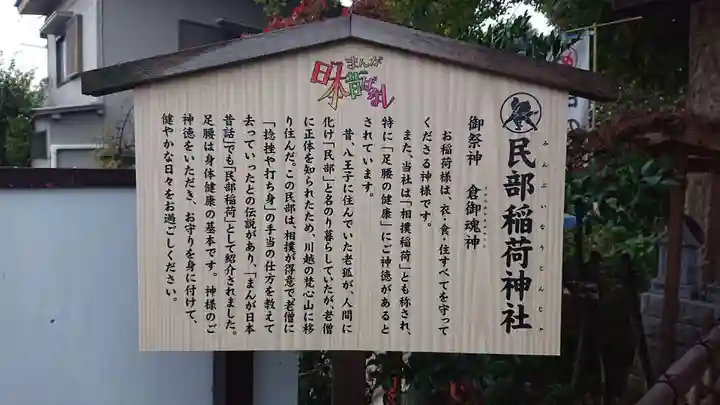 民部稲荷神社
みんぶいなりじんじゃ
御祭神　倉御魂神
お稲荷様は、衣・食・住すべてを守って
くださる神様です。
また、当社は「相撲稲荷」とも称され、
特に「足腰の健康」にご神徳があると
されています。
昔、八王子に住んでいた老狐が、人間に
化け「民部」と名のり暮らしていたが老僧
に正体を知られたため、川越の梵心山に移
り住んだ。この民部は、相撲が得意で老僧に
「捻挫や打ち身」の手当の仕方を教えて
去っていったとの伝説があり、「まんが日本
昔話」でも「民部稲荷」として紹介されました。
足腰は身体健康の基本です。神様のご
神徳をいただき、お守りを身に付けて、
健やかな日々をお過ごしください。
まんが
日本昔ばなし